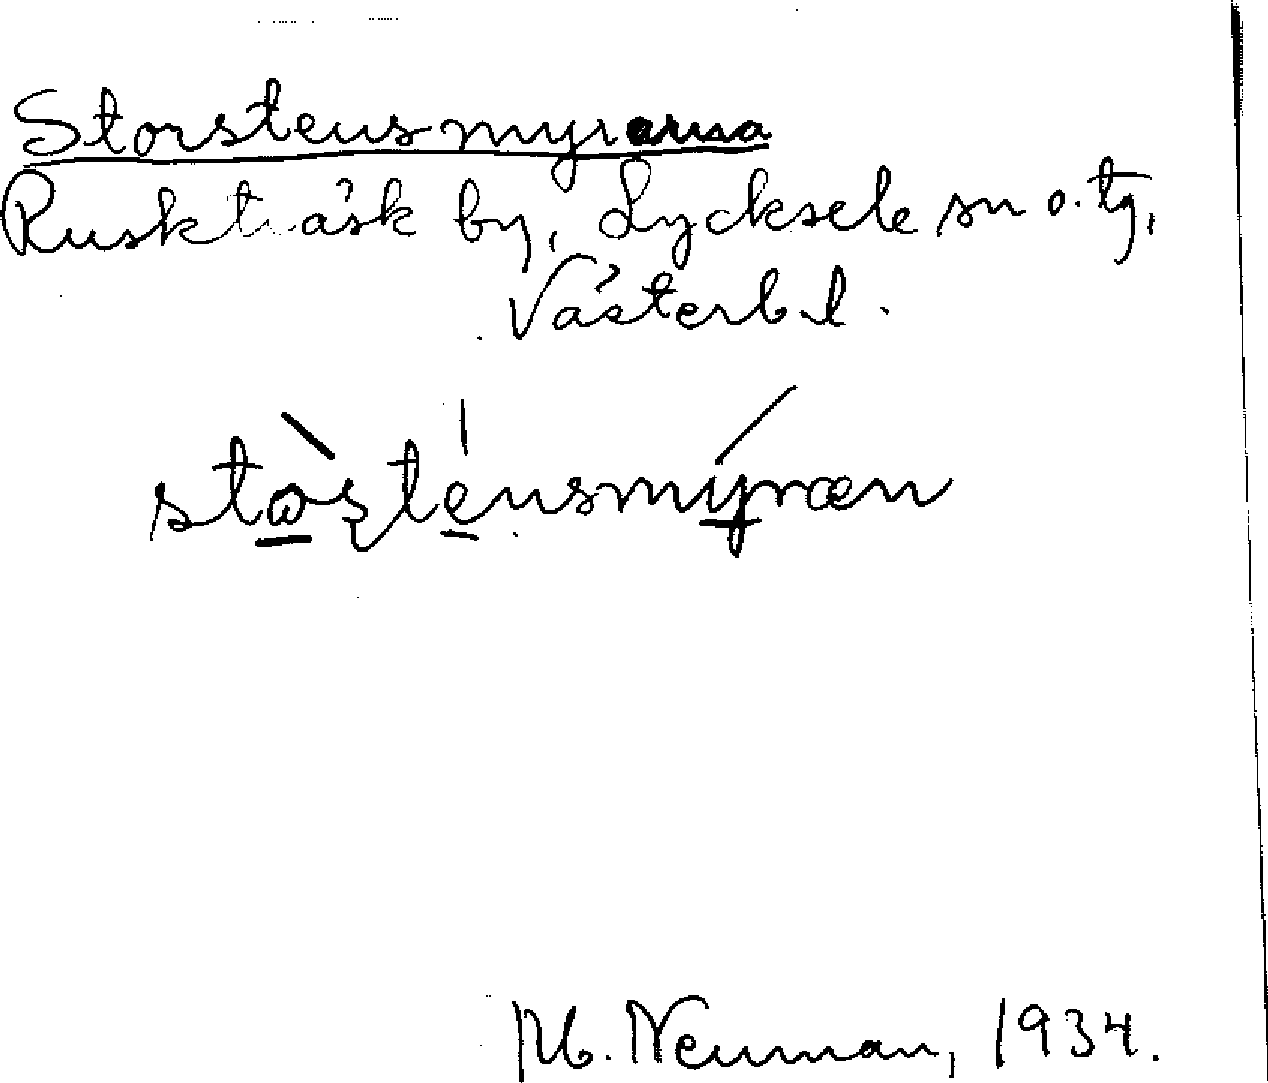 Storstensmyrarna
Ruskträsk by, Lycksele sn o. tg,
Västerb. l.
M. Neuman, 1934.